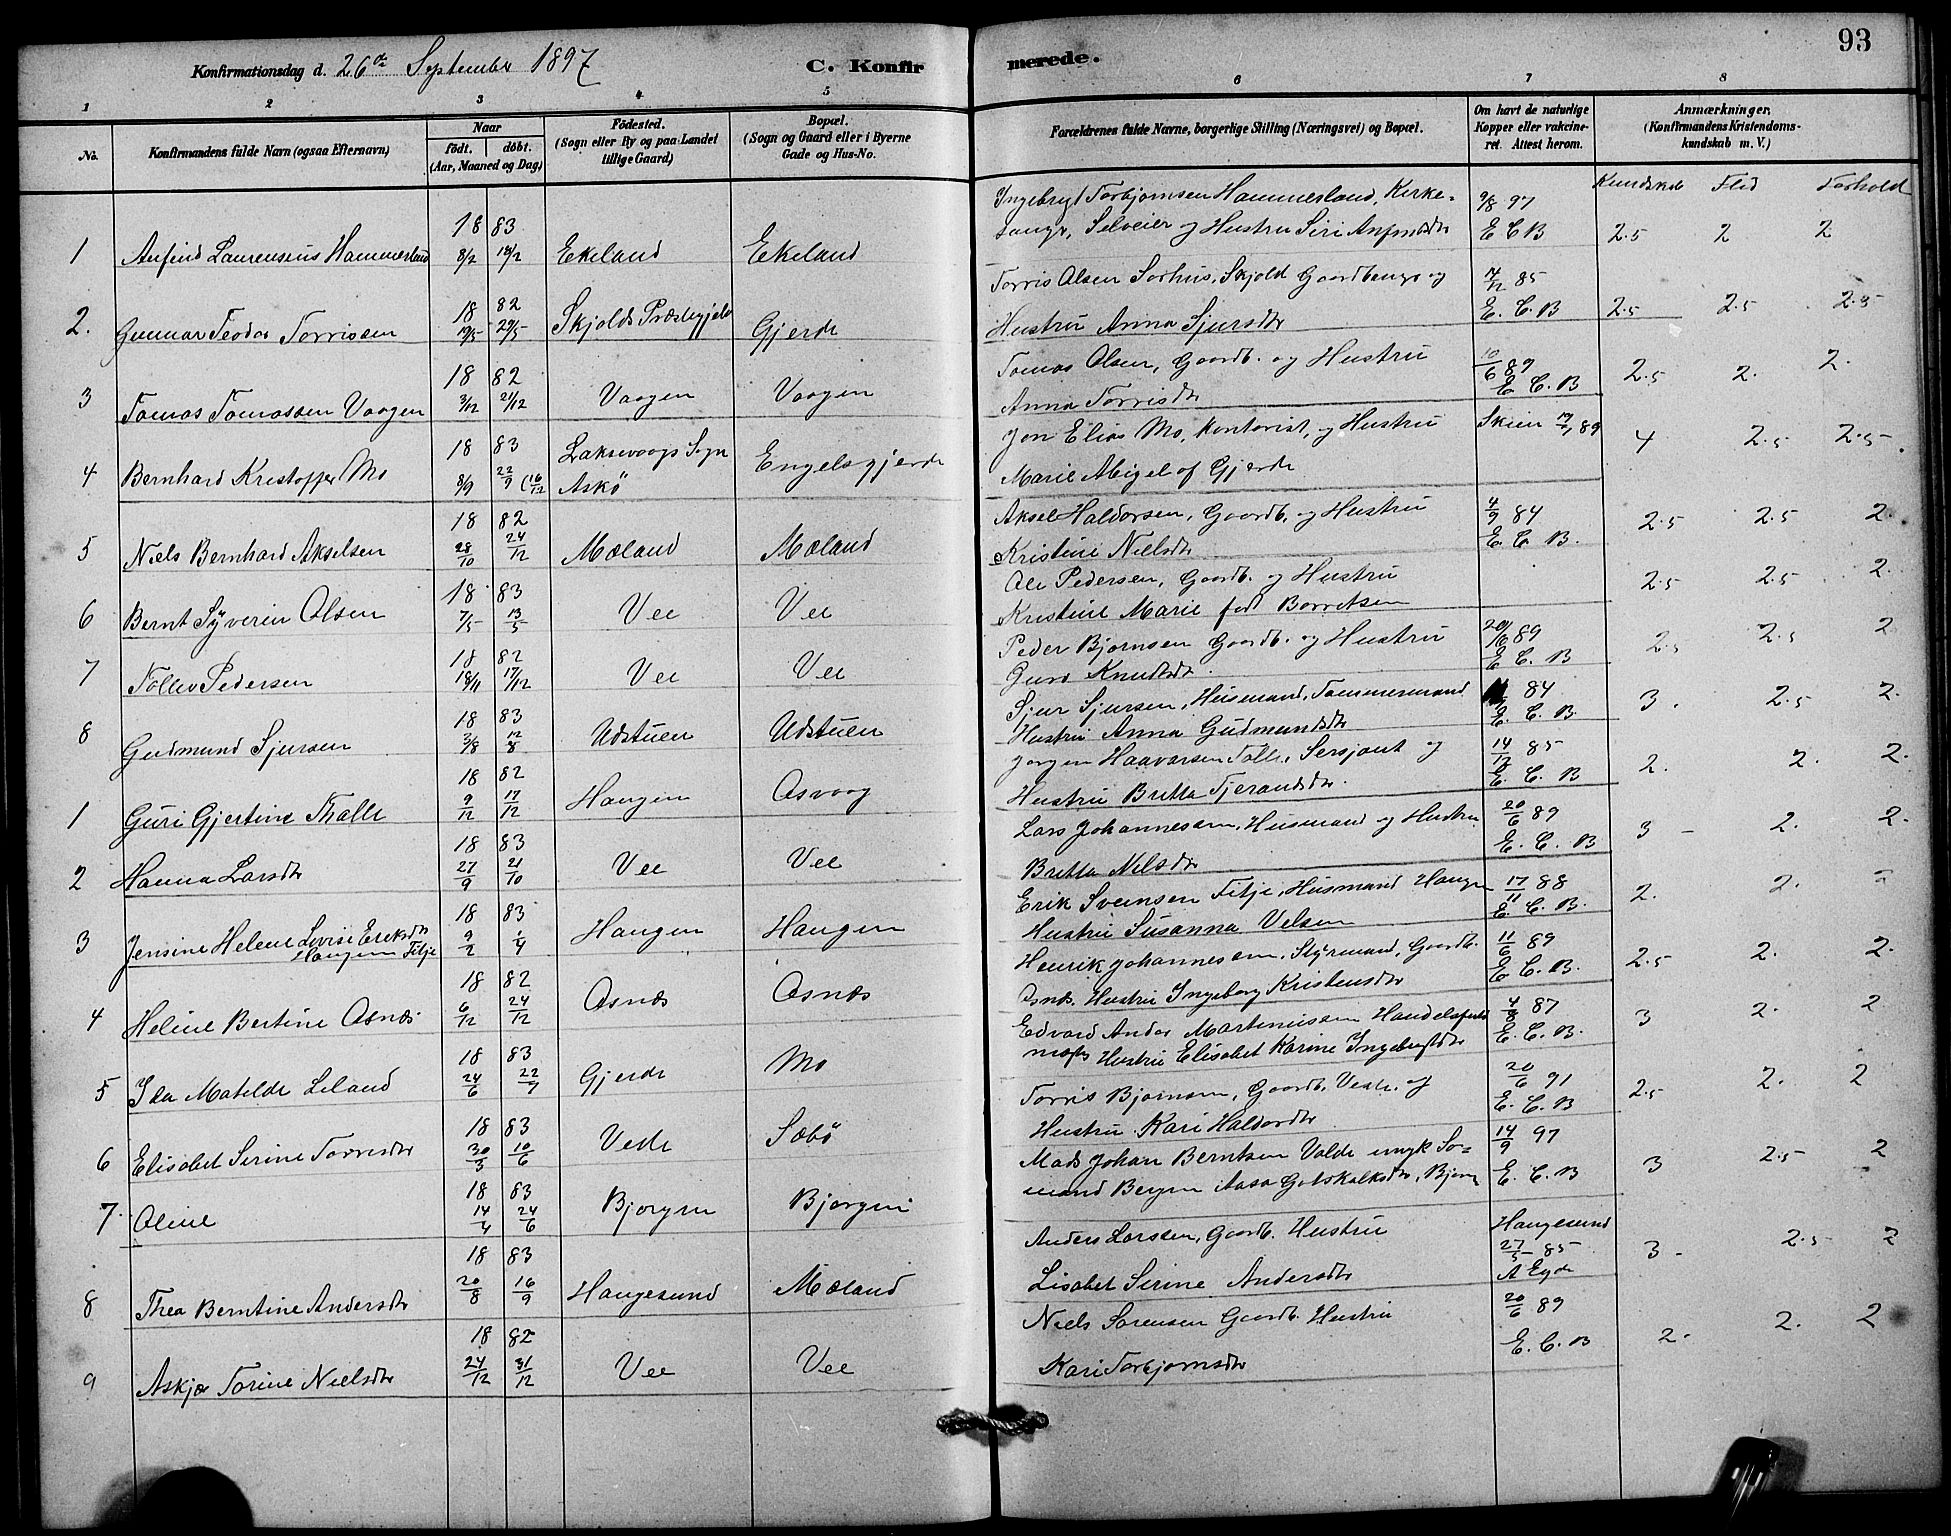 Konfirmationsdag d. 26de September 1897 C. Konfirmerede. 93
1 2 3 4 5 6 7 8
No.
Konfirmandens fulde Navn (ogsaa Efternavn)
Naar
født. døbt.
(Aar, Maaned og Dag)
Födested.
(Sogn eller By og paa Landet
tillige Gaard)
Bopæl.
(Sogn og Gaard eller i Byerne
Gade og Hus-No.
Forældrenes fulde Navne, borgerlige Stilling (Næringsvei) og Bopæl.
Om havt de naturlige
Kopper eller vakcine-
ret. Attest herom.
Anmærkninger,
(Konfirmandens Kristendoms-
kundskab m. V.)
Kundskab Flid Forhold
1883
1 Anfind Laurensius Hammerland 8/2 18/2 Ekeland Ekeland
Ingebrigt Torbjørnsen Hammerland, Kirke-
sanger, Selveier og Hustru Siri Anfinsdtr
9/8 97
E C B 2.5 2 2
1882
2. Gunnar Teodor Torrissen 19/5 29/5 Skjolds Præstegjeld Gjerde
Torris Olsen Sørhus, Skjold Gaardbruger og
Hustru Anna Sjursdtr
14/12 85
E. C. B 2.5 2.5 2.5
1882
3 Tomas Tomassen Vaagen 3/12 21/12 Vaagen Vaagen
Tomas Olsen, Gaardb. og Hustru
Anna Torrisdtr
10/6 89
E. C. B 2.5 2. 2.
1883
4 Bernhard Kristoffer Mo 8/9 22/9 (16/12 Laksevaags Sogn
Askö Engelsgjerde
Jon Elias Mo, Kontorist, og Hustru
Marie Abigel af Gjerde
Skien 19/7 89 4 2.5 2.5
1882
5 Niels Bernhard Akselsen 28/10 24/12 Mæland Mæland
Aksel Haldorsen, Gaardb. og Hustru
Kristine Nielsdtr
4/9 84
E. C. B. 2.5 2.5 2
1883
6 Bernt Syverin Olsen 7/5 13/5 Vee Vee
Ole Pedersen, Gaardb. og Hustru
Kristine Marie født Borretsen
2.5 2.5 2.
1882
7 Tollev Pedersen 18/11 17/12 Vee Vee
Peder Bjørnsen Gaardb. og Hustru
Guro Knudsdtr
20/10 89
E C. B 2.5 2.5 2
1883
8 Gudmund Sjursen 3/8 12/8 Udstuen Udstuen
Sjur Sjursen, Husmand, Tømmermand
Hustru Anna Gudmundsdtr
84
E. C. B 3. 2.5 2.
1882
1 Guri Gjertine Tkalle 9/12 17/12 Haugen Osvaag
Jørgen Haavarsen Tolle, Sersjant og
Hustru Britta Tjerandsdtr.
14/12 85
E. C. B 2. 2. 2.
1883
2 Hanna Larsdtr 27/9 21/10 Vee Vee
Lars Johannessen, Husmand og Hustru
Britta Nilsdtr
20/6 89
E. C. B 3 – 2. 2.
1883
3 Jensine Helene Lovise Eriksdtr
Haugen Fitje 9/2 1/4 Haugen Haugen
Erik Sveinsen Fitje, Husmand Haugen
Hustru Susanna Velsen
17/11 88
E. C. B. 2. 2. 2
1882
4 Heline Bertine Osnæs 6/12 24/12 Osnæs Osnæs
Henrik Johannessen, Styrmand, Gaardb.
Osnæs. Hustru Ingeborg Kristensdtr
11/6 89
E C. B. 2.5 2. 2.
1883
5 Ida Matilde Leland 24/6 22/7 Gjerde Mo
Edvard Andor Martinussen Handelsfuld
mægt. Hustru Elisabet Karine Ingebrigtsdtr
4/8 87
E. C. B. 3 2. 2
1883
6 Elisabet Serine Torrisdtr 30/3 10/6 Vede Sæbö
Torris Bjørnsen, Gaardb. Vestr. og
Hustru Kari Haldorsdtr
20/6 91
E. C. B 2.5 2. 2
1883
7. Oline 14/4 24/6 Bjorgen Bjorgen
Mads Johan Berntsen Valde ungk Sø-
mand Bergen Aasa Gotskalksdtr, Bjorg
14/9 97
E. C. B 3 2.5 2
1883
8 Thea Berntine Andersdtr 20/8 16/9 Haugesund Mæland
Anders Larssen, Gaardb. Hustru
Lisabet Serine Andersdtr
Haugesund
27/5 85
A Eyde 3 – 2.5 2
1882
9 Askjer Torine Nielsdtr 24/12 31/12 Vee Vee
Niels Sørensen Gaardb. Hustru
Kari Torbjørnsdtr
20/6 89
E. C. B 2. 2. 2